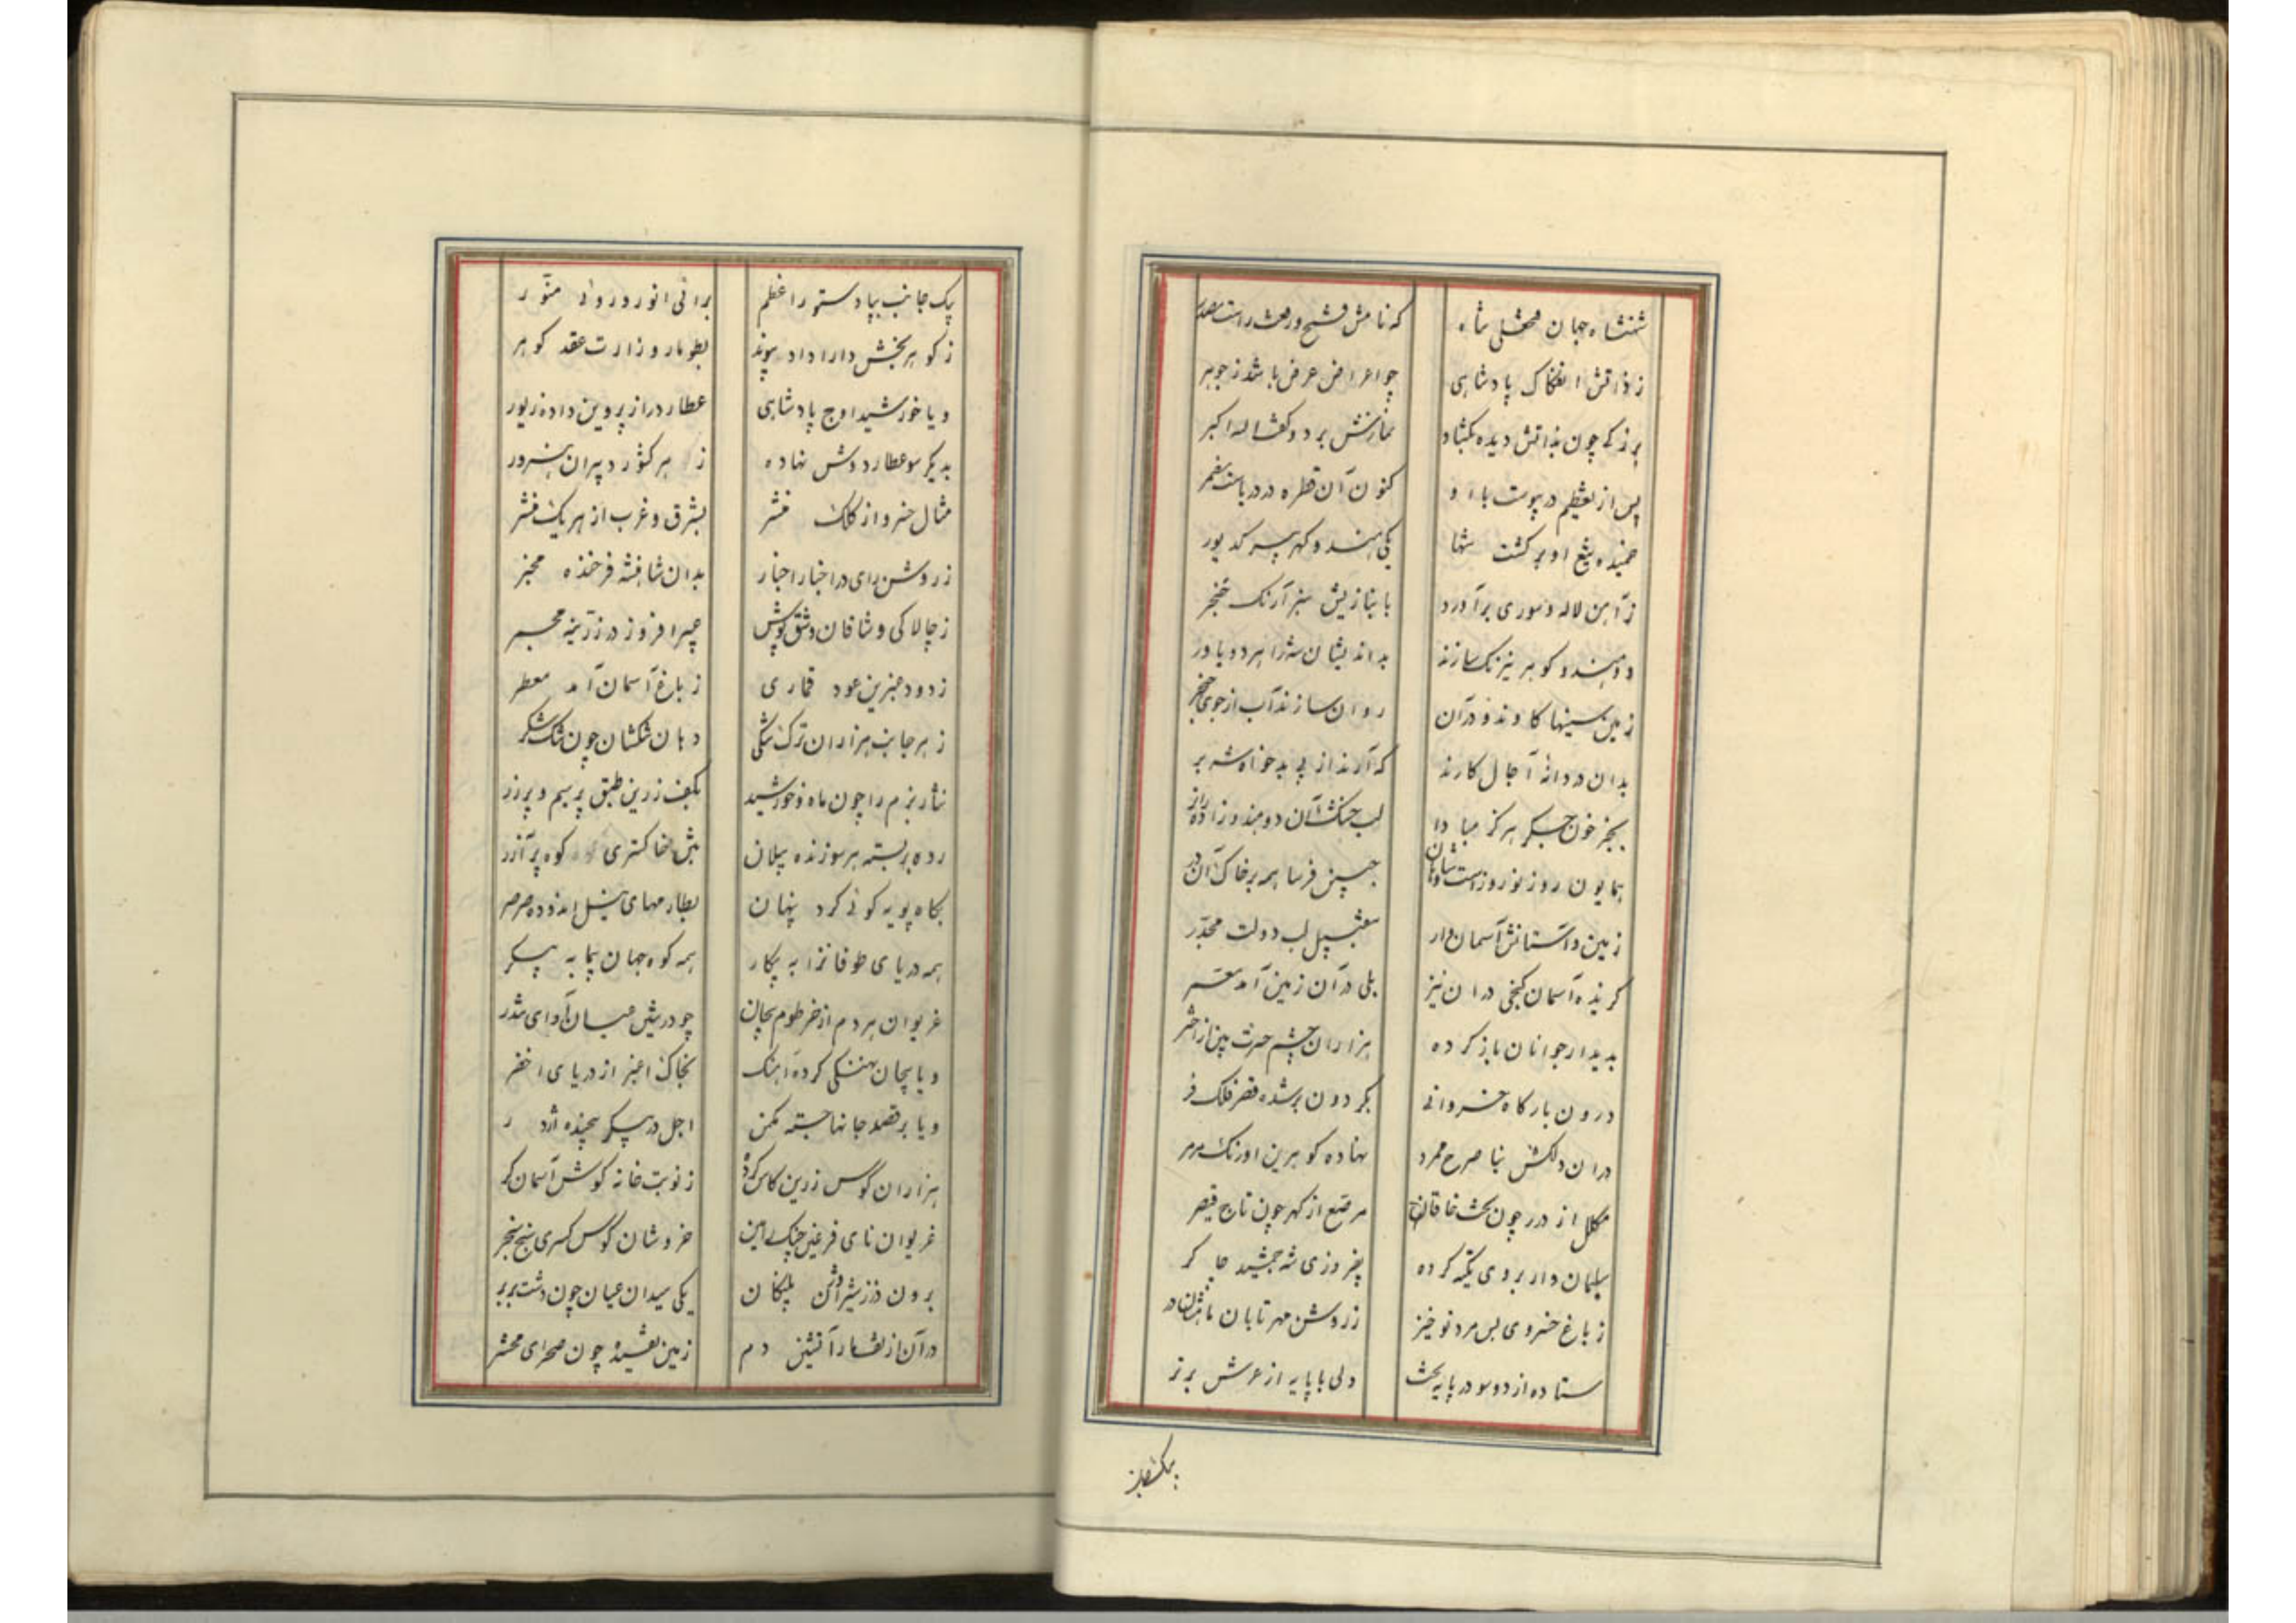 شنشاه جهان فتحعلی شاه که نامش فتح و رفعت راست مصدر
ز ذاتش انفکاک پادشاهی چو اعراض عرض باشد ز جوهر
بزرگی چون بذاتش دیده بکشاد نمازش برد و گفت الله اکبر
پس از تعظیم در پیوست با او کنون آن قطره در دریاست مضمر
خمیده تیغ او بر کشت تنها یکی هندو گهر پیر کدیور
ز آهن لاله و سوری برآورد سبز آرنک خنجر
دو هندو گوهر نیرنک سازند بداندیشان شه را هر دو یاور
زمین سینها کاوند و در آن روان سازند آب از جوی خنجر
بدان در دانهٔ آجال کارند که آرند از پی بدخواه شه بر
بجز خون جگر هرگز مبادا لب خشک آن دو هندو زاده را تر
همایون روز نوروز است شاهان جبین فرسا همه بر خاک آن در
زمین و آستانش آسمان وار بتقبیل لب دولت مجدر
گزیده آسمان کنجی در آن نیز بلی در آن زمین آمد مقر
بدیدار جوانان باز کرده هزاران چشم حسرت بین ز اختر
درون بارگاه خسروانی بگردون بر شده قصر فلک فر
در آن دلکش بنا صرح ممرد نهاده گوهرین اورنک مرمر
مکلل از درر چون تخت خاقان مرصع از گهر چون تاج قیصر
سلیمان وار بر وی تکیه کرده بفیروزی شه جمشید چاکر
ز باغ خسروی بس سرو نوخیز ز روشن مهر تابان
ستاده از دو سو در پایه تخت ولی با پایه از عرش برتر
یک جانب
یک جانب بپا دستور اعظم برائی انور و روئی منور
ز گوهر بخش دارا داد پیوند بطومار وزارت عقد گوهر
و یا خورشید اوج پادشاهی عطارد را ز پروین داده زیور
بدیگر سو عطارد وش نهاده ز هر کشور دبیران هنرور
مثال خسرو از کلک منشر بشرق و غرب از هر یک منشر
ز روشن رای در اخبار اخبار بدان شاهنشه فرخنده مخبر
ز چالاکی وشاقان وشق پوش عبیر افروز در زرینه مجمر
ز دود عنبرین عود قماری ز باغ آسمان آمد معطر
ز هر جانب هزاران ترک مشکی دهان تنکشان چون تنک شکر
نثار بزم را چون ماه و خورشید بکف زرین طبق پر سیم و پر زر
رده بر بسته هر سو زنده پیلان بتن خاکستری کوه پر آذر
بگاه پویه گوئی کرد پنهان بطارمهای نیل اندوده صرصر
همه دریای طوفانزا به پیکار همه کوه جهان پیما به پیکر
غریوان هر دم از خرطوم پیچان چو در نیش میان آوای تندر
و یا پیچان نهنگی کرده آهنک بخاک اغبر از دریای اخضر
و یا بر قصد جانها جسته مکمن اجل در پیکر پیچنده اژدر
هزاران کوس زرین کاس کرده ز نوبت خانه گوش آسمان کر
غریوان نای فرعنین چنک آیین خروشان کوس کسری سنج سنجر
برون در ز شیراوش پلنکان یکی میدان عیان چون دشت بربر
در آن از تف مار آتشین دم زمین تفتیده چون صحرای محشر